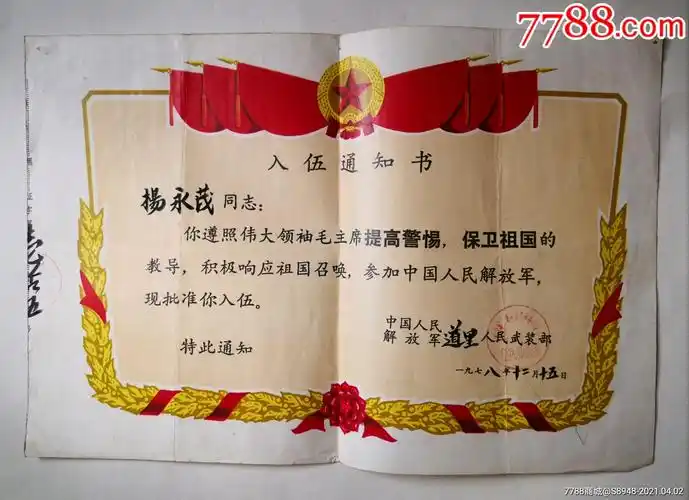 7788.com
入伍通知书
楊永茂同志：
你遵照伟大领袖毛主席提高警惕，保卫祖国的
教导，积极响应祖国召唤，参加中国人民解放军，
现批准你入伍。
特此通知
中国人民
解放军道里人民武装部
一九七八年十二月十五日
7788商城@S8948-2021.04.02